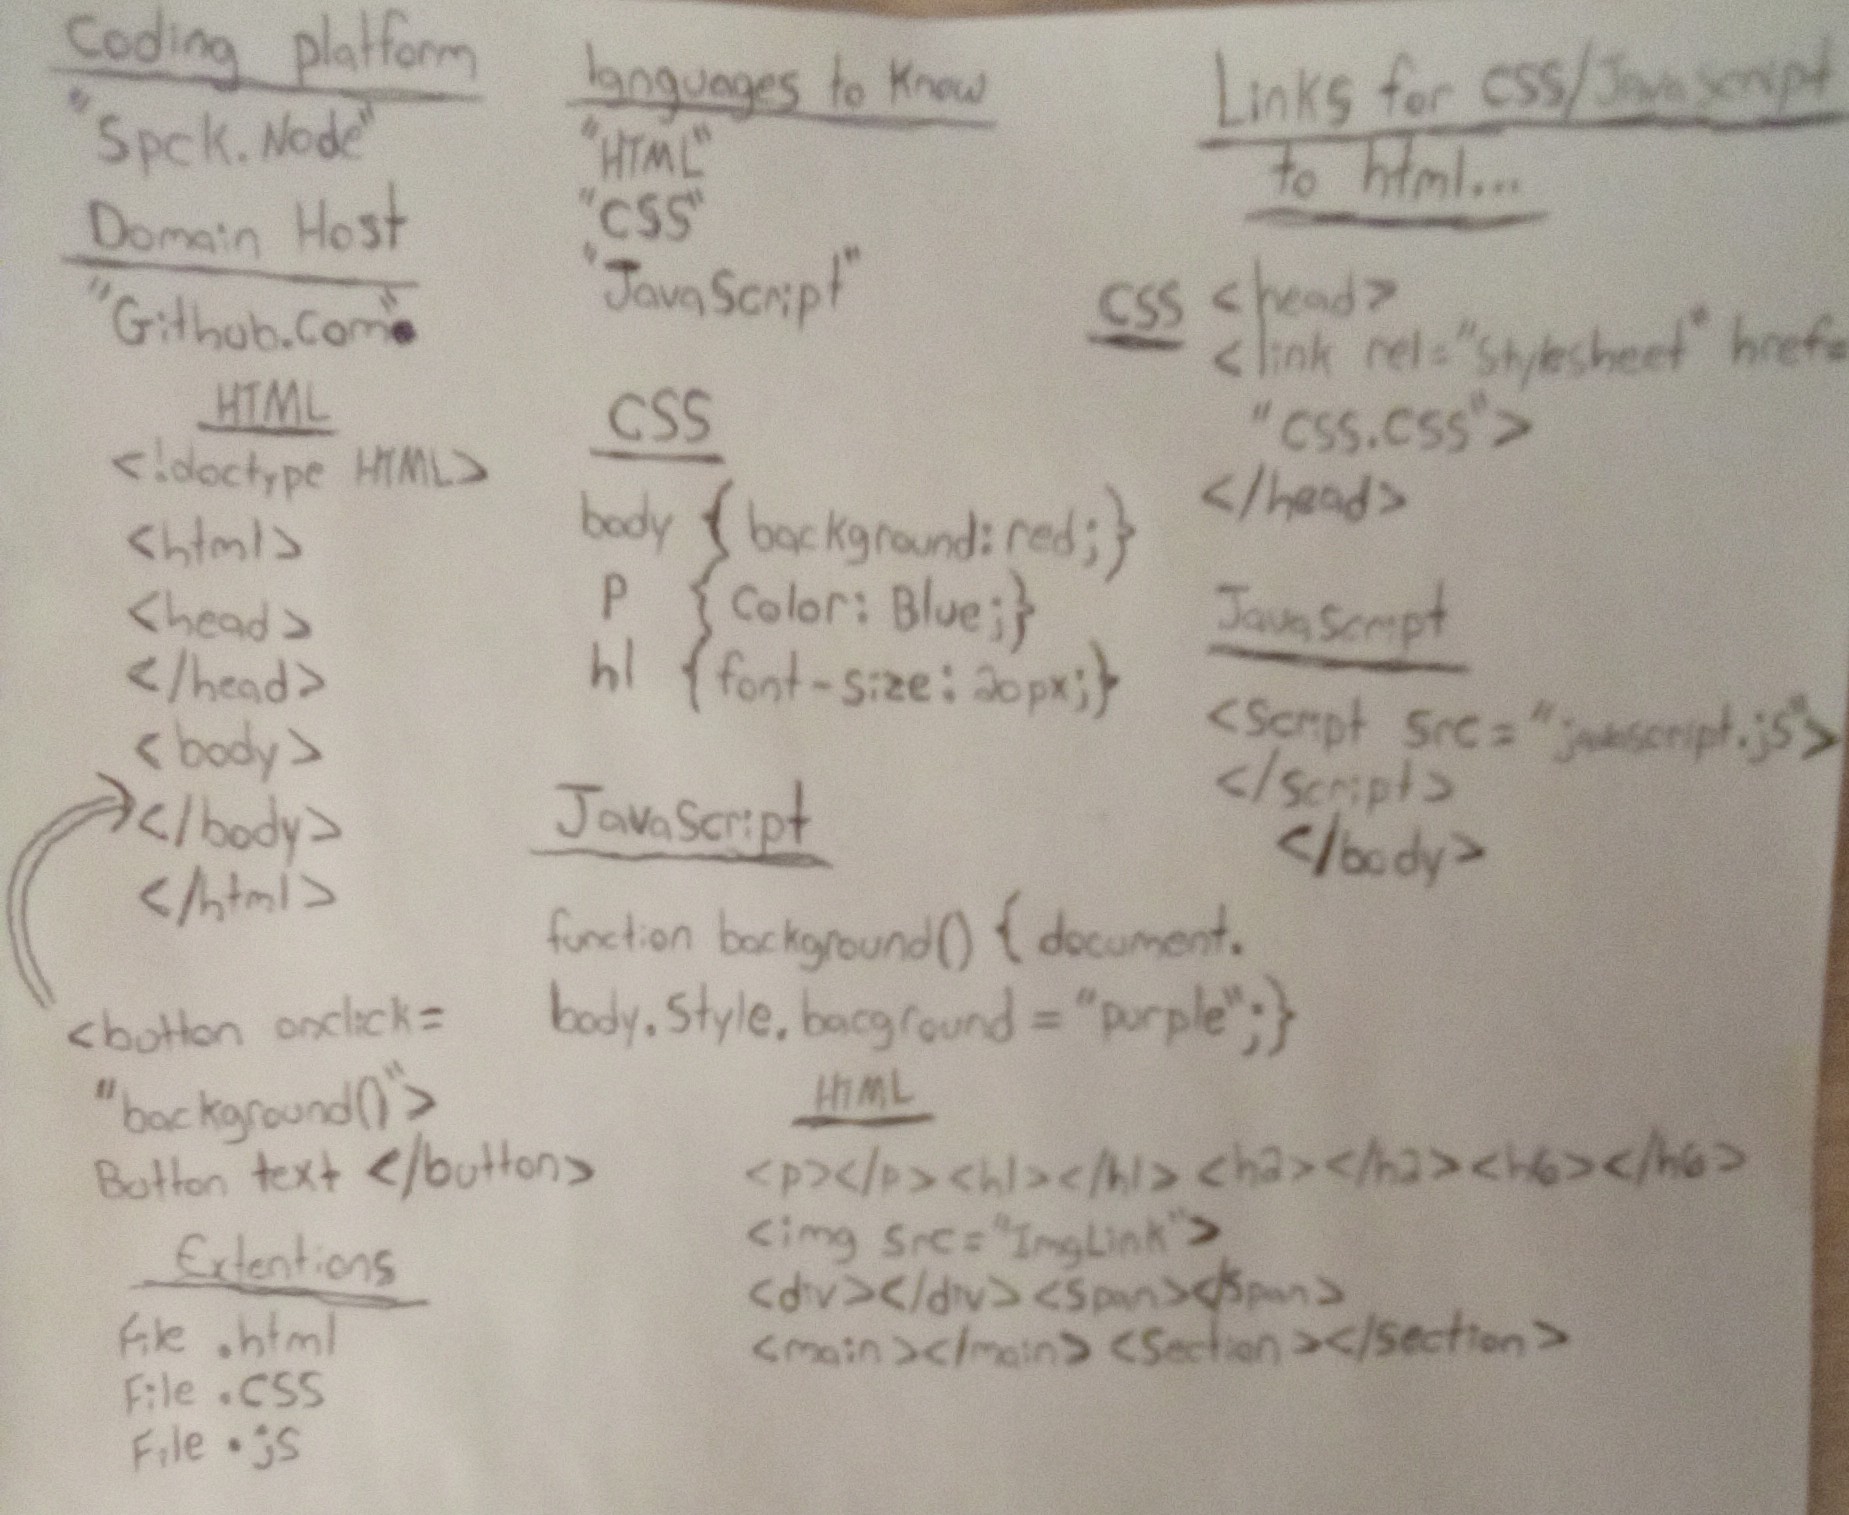 Coding platform
"Spck.Node"
Domain Host
"Github.com"
HTML
<!doctype HTML>
<html>
<head>
</head>
<body>
</body>
</html>
<button onclick=
"background()">
Button text </button>
Extentions
File .html
File .CSS
File .js
languages to Know
"HTML"
"CSS"
"JavaScript"
CSS
body { background: red; }
P { Color: Blue; }
h1 { font-size: 20px; }
JavaScript
function background() { document.
body.Style.bacground = "purple"; }
HTML
<p></p><h1></h1><h2></h2><h6></h6>
<img src="ImgLink">
<div></div><span></span>
<main></main><Section></section>
Links for CSS/JavaScript
to html...
CSS <head>
<link rel="Stylesheet" href=
"CSS.CSS">
</head>
JavaScript
<Script src="javascript.js">
</script>
</body>